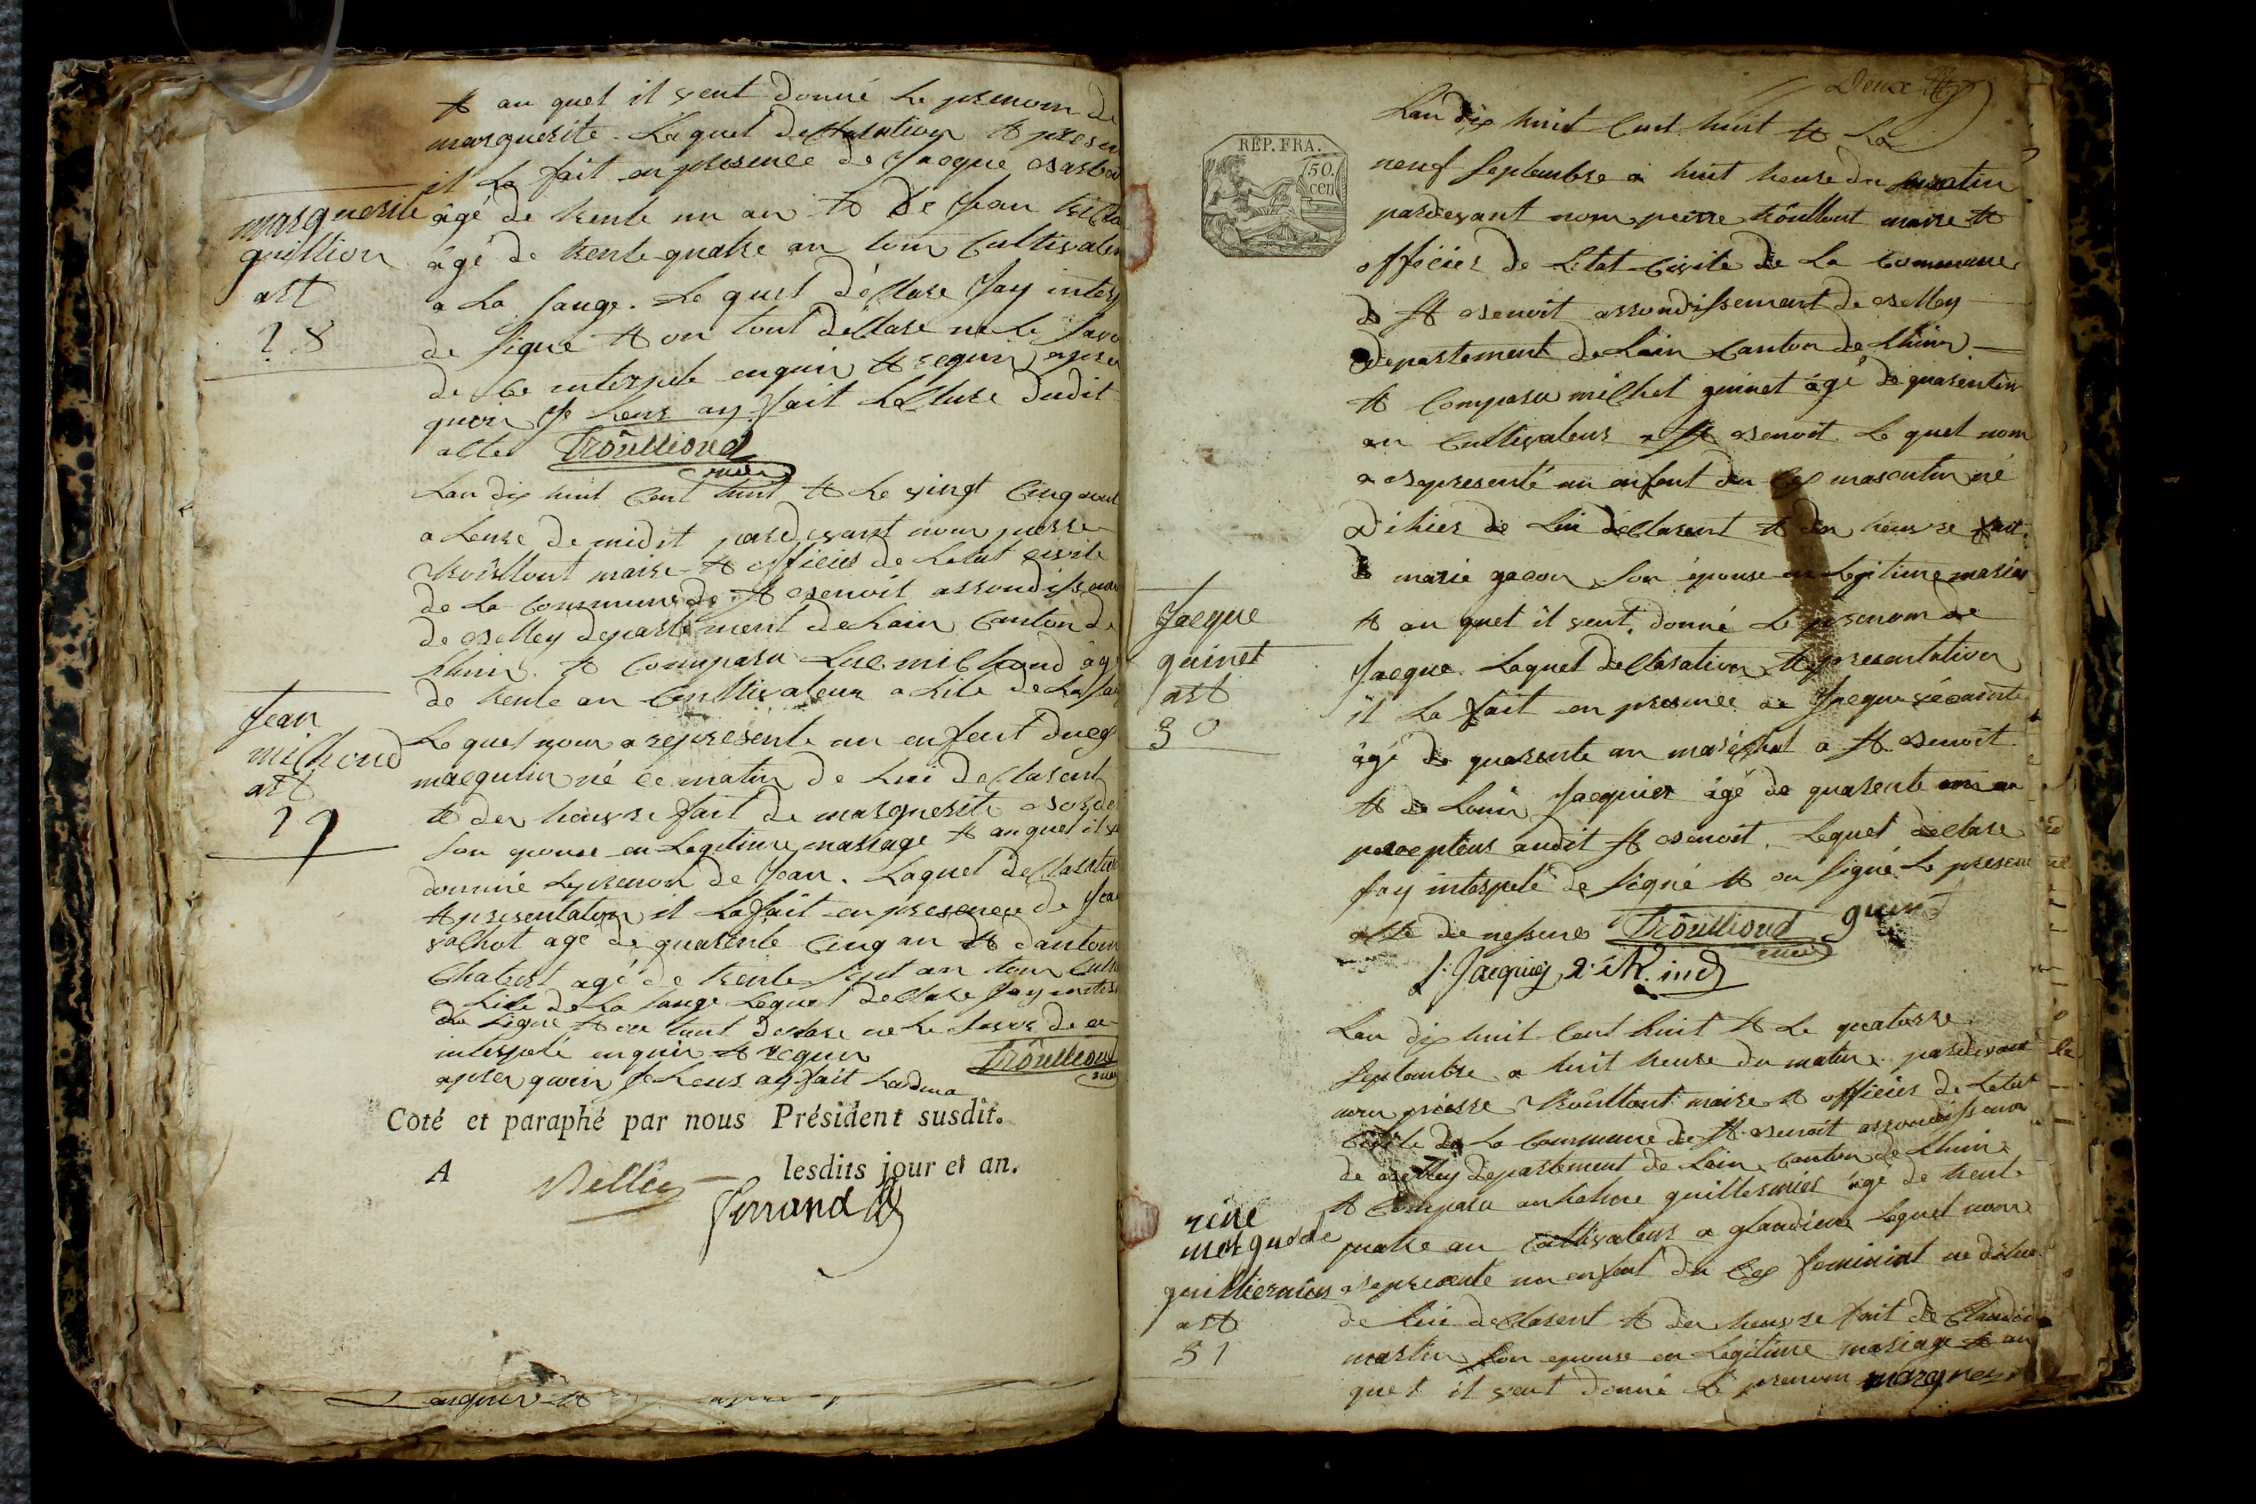 et au quel il veut donné le prenom de
marguerite. Laquel declaration et presen
il la fait en presence de Jacque
marguerite
guillion
art
28
âgé de trente un an et De Jean
âgé de trente quatre an tous Cultivateu
a La sauge. Le quel déclare Jay interp
de signé et on tout déclare ne le savo
de ce interpelé enquis et requis apre
quoi Je leur ay fait lecture dudit
acte Trôullioud
maire
Lan dix huit Cent huit et Le vingt Cinq aout
a Leure de midit pardevant nous pierre
trôullout maire et officier de Letat civile
de La Commune de st benoit arrondissem
de belley departement de Lain Canton de
Lhuis. et Comparu Luc michoud âgé
de trente an Cultivateur a Lile de La sau
Jean
michoud
art
29
Le quel nous a representé un enfant du cex
macqulin né ce matin de Lui declarent
et der heurs re fait de marguerite
son epouse en Legitime mariage et au quel il v
donné Le prenom de Jean. Laquel declaration
et presentation il La fait en presence de Jea
valhot agé de quarente Cinq an et dantoin
Chabert agé de trente sept an tous Culti
a Lile de La sauge Lequel declare Jay inter
de signé et on tout declare ne le savoir de ce
interpelé enquis et requis
apres quoi Je Leurs ay fait
Trôullioud
maire
Coté et paraphé par nous Président susdit.
A Bellēy lesdits jour et an.
Ferrand
enquis et
Deux
Lan dix huit Cent huit et Le
REP. FRA.
50.
cen
neuf septembre a huit heure du matin
pardevant nous pierre trôullout maire et
officier de Letat Civile de La Commune
de st benoit arrondissement de belley
departement de Lain Canton de Lhuis
et Comparu michel guinet âgé de quarentin
an Cultivateur a st benoit Le quel nous
a representé un enfant du cex mascutin né
d'ihier de Lui déclarent et der heurs re fait
de marie gacon son épouse en Legitime mariage
Jacque
guinet
art
30
et au quel il veut donné Le prenom de
Jacque. Laquel declaration et presentation
il La fait en presence de Jacque
âgé de quarente an maréchal a st benoit
et de Louis Jacquier âgé de quarente an
percepteur audit st benoit. Lequel declare
Jay interpelé de signé et on signé Le present
acte de Trôullioud guinet
maire
L. Jacquier
Lan dix huit Cent huit et Le quatorse
septembre a huit heure du matin pardevant
nous pierre trôullout maire et officier de Letat
Civile de La Commune de st benoit arrondissemen
de belley departement de Lain Canton de Lhuis
et Comparu anthelme guillermier âgé de trente
reine
guillermier
art
31
quatre an Cultivateur a glandieu Lequel nous
a representé un enfant du cex feminint né
de Lui declarent et der heurs re fait de Claudi
martin son epouse en Legitime mariage et au
quel il veut donné Le prenom